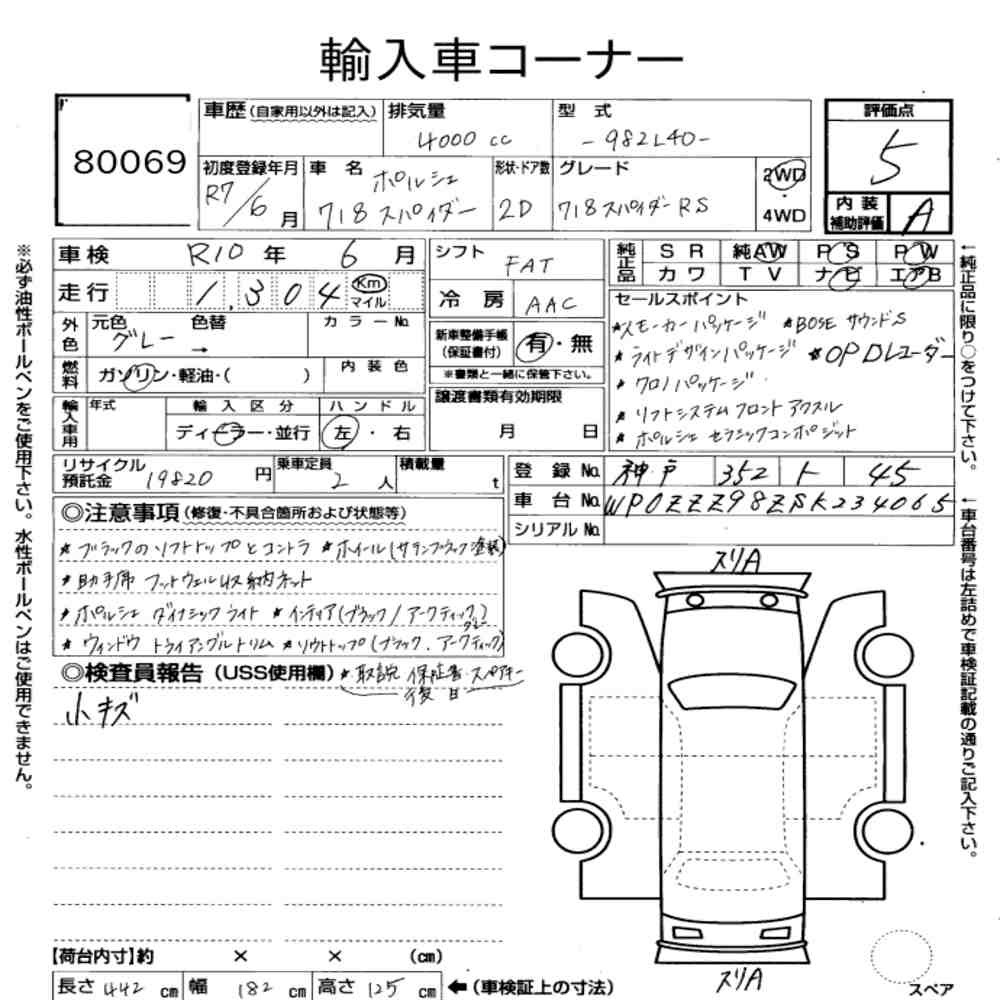 輸入車コーナー
80069
車歴(自家用以外は記入) 排気量 4000 cc 型式 -982L40-
評価点 5
初度登録年月 R7/6月 車名 ポルシェ 718スパイダー 形状・ドア数 2D グレード 718スパイダーRS 2WD ・ 4WD
内装補助評価 A
車検 R10年 6月 シフト FAT 純正品 SR 純AW PS PW
カワ TV ナビ エアB
走行 1,304 Km マイル 冷房 AAC
セールスポイント
*スモーカーパッケージ *BOSEサウンドS
*ライトデザインパッケージ *OP Dレコーダー
*クロノパッケージ
*リフトシステムフロントアクスル
*ポルシェセラミックコンポジット
外色 元色 グレー 色替 → カラーNo. 新車整備手帳(保証書付) 有・無
※書類と一緒に保管下さい。
燃料 ガソリン・軽油・( ) 内装色
譲渡書類有効期限 月 日
輸入車用 年式 輸入区分 ディーラー・並行 ハンドル 左・右
リサイクル預託金 19820円 乗車定員 2人 積載量 t
登録No. 神戸 352 ト 45
車台No. WP0ZZZ98ZSK234065
シリアルNo.
◎注意事項(修復・不具合箇所および状態等)
*ブラックのソフトトップとコントラ *ホイール(サテンブラック塗装)
*助手席 フットウェル収納ネット
*ポルシェ ダイナミックライト *インテリア(ブラック/アークティックグレー)
*ウィンドウ トライアングルトリム *ソフトトップ(ブラック.アークティック)
◎検査員報告(USS使用欄) *取説 保証書 スペアキー 後日
小キズ
スリA
スリA
【荷台内寸】約 × × (cm)
長さ 442 cm 幅 182 cm 高さ 125 cm ←(車検証上の寸法)
スペア
※必ず油性ボールペンをご使用下さい。水性ボールペンはご使用できません。
←純正品に限り○をつけて下さい。
←車台番号は左詰めで車検証記載の通りご記入下さい。